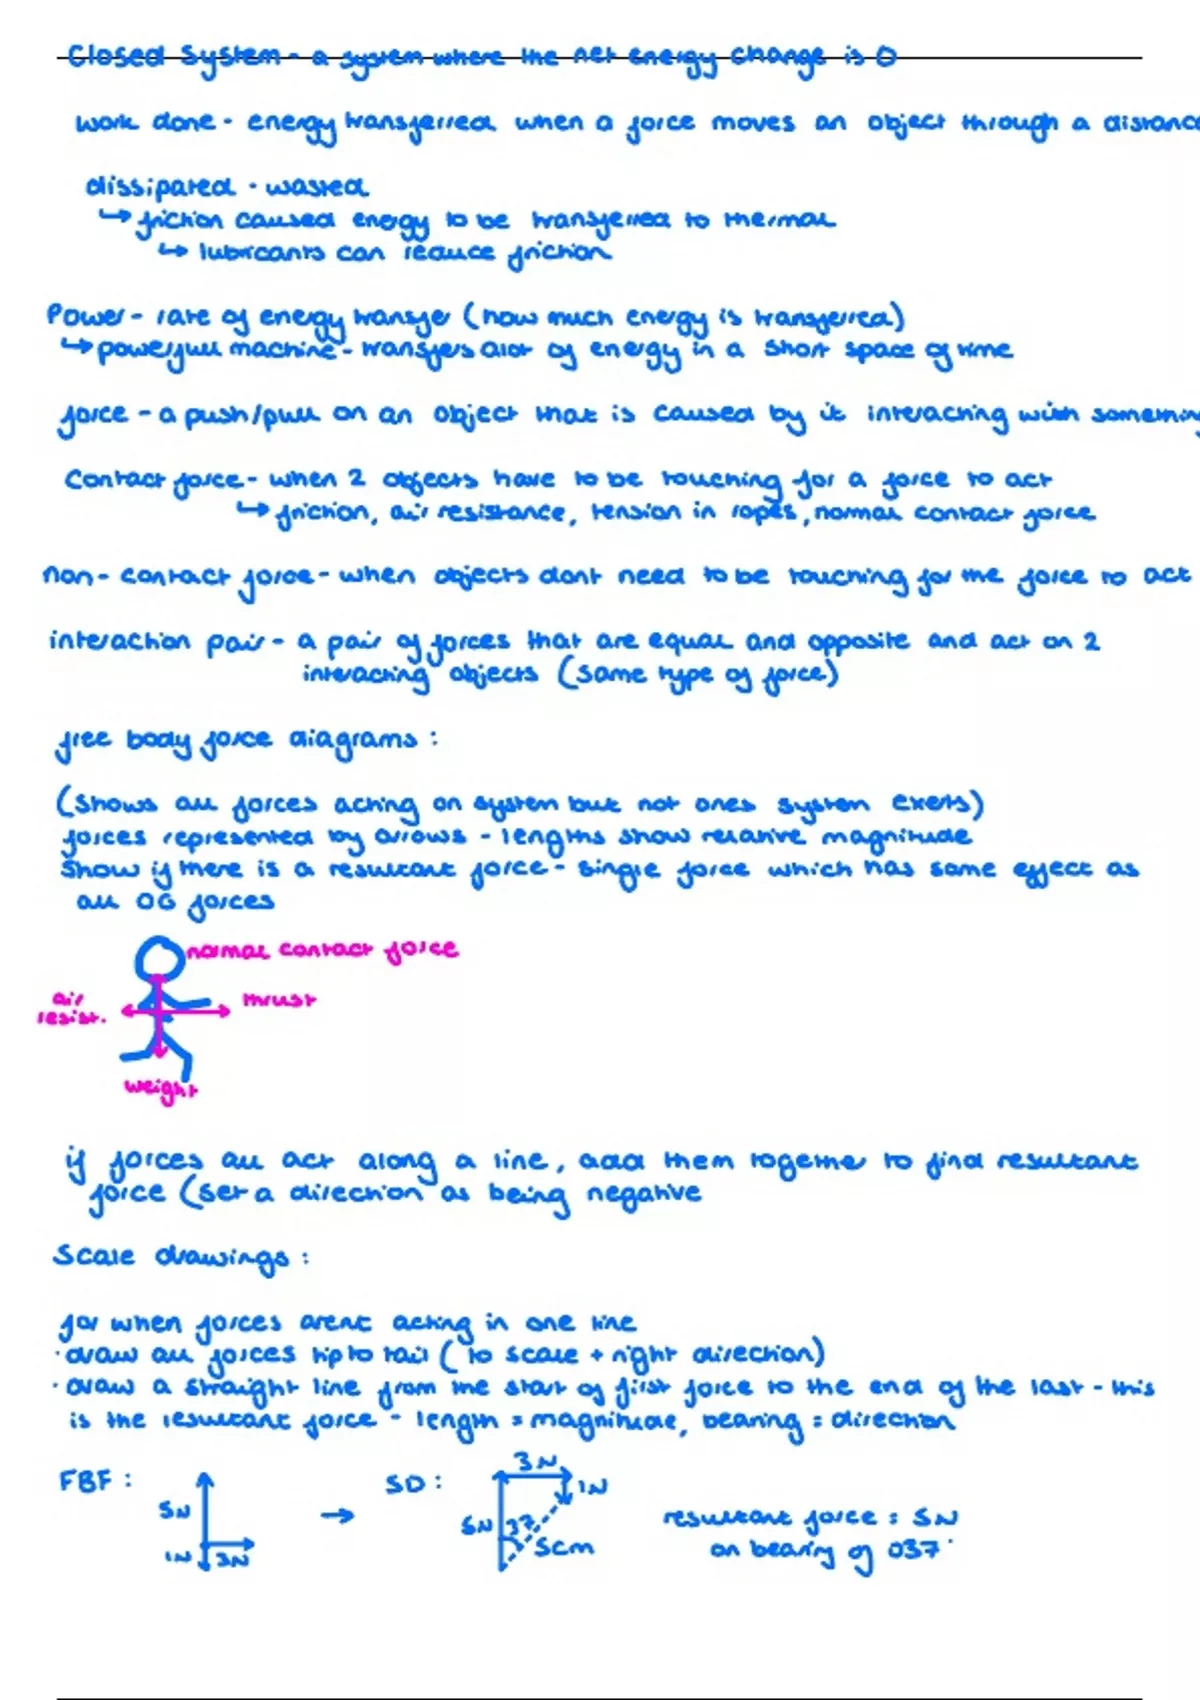 Closed System - a system where the net energy change is 0
work done - energy transferred when a force moves an object through a distance
dissipated - wasted
↳ friction caused energy to be transferred to thermal
↳ lubricants can reduce friction
Power - rate of energy transfer (how much energy is transferred)
↳ powerfull machine - transfers alot of energy in a short space of time
force - a push/pull on an object that is caused by it interacting with something
Contact force - when 2 objects have to be touching for a force to act
↳ friction, air resistance, tension in ropes, normal contact force
non-contact force - when objects dont need to be touching for the force to act
interaction pair - a pair of forces that are equal and opposite and act on 2
interacting objects (same type of force)
free body force diagrams:
(shows all forces acting on system but not ones system exerts)
forces represented by arrows - lengths show relative magnitude
Show if there is a resultant force - single force which has same effect as
all OG forces
normal contact force
air
resist.
thrust
weight
if forces all act along a line, add them together to find resultant
force (set a direction as being negative
Scale drawings:
for when forces arent acting in one line
· draw all forces tip to tail (to scale + right direction)
· draw a straight line from the start of first force to the end of the last - this
is the resultant force - length = magnitude, bearing = direction
FBF:
5N
1N
3N
→
SD:
3N
1N
5N
37
5cm
resultant force = 5N
on bearing of 037°